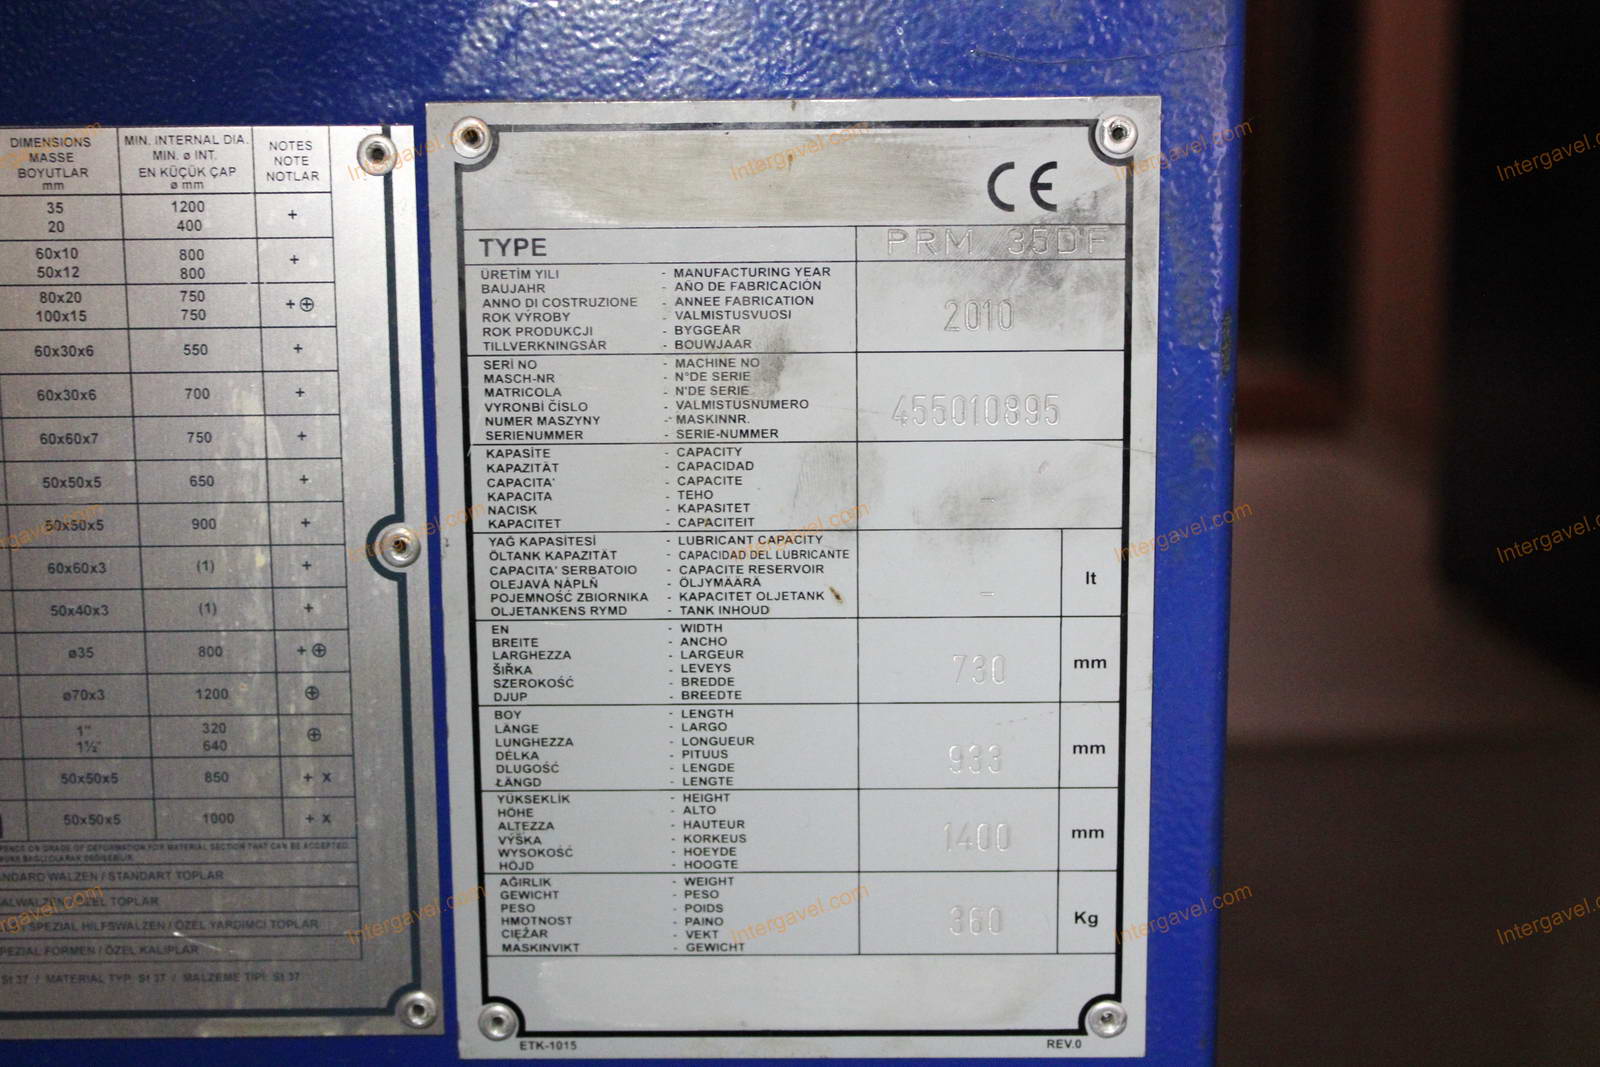 DIMENSIONS
MASSE
BOYUTLAR
mm
MIN. INTERNAL DIA.
MIN. ø INT.
EN KÜÇÜK ÇAP
ø mm
NOTES
NOTE
NOTLAR
35 1200 +
20 400
60x10 800 +
50x12 800
80x20 750 + ⊕
100x15 750
60x30x6 550 +
60x30x6 700 +
60x60x7 750 +
50x50x5 650 +
50x50x5 900 +
60x60x3 (1) +
50x40x3 (1) +
ø35 800 + ⊕
ø70x3 1200 ⊕
1" 320 ⊕
1½" 640
50x50x5 850 + x
50x50x5 1000 + x
ON GRADE OF DEFORMATION FOR MATERIAL SECTION THAT CAN BE ACCEPTED.
WALZEN / STANDART TOPLAR
ÖZEL TOPLAR
SPEZIAL HILFSWALZEN / ÖZEL YARDIMCI TOPLAR
FORMEN / ÖZEL KALIPLAR
St 37 / MATERIAL TYP. St 37 / MALZEME TİPİ: St 37
CE
TYPE PRM 35DF
ÜRETİM YILI - MANUFACTURING YEAR
BAUJAHR - AÑO DE FABRICACIÓN
ANNO DI COSTRUZIONE - ANNEE FABRICATION
ROK VÝROBY - VALMISTUSVUOSI
ROK PRODUKCJI - BYGGEÅR
TILLVERKNINGSÅR - BOUWJAAR
2010
SERİ NO - MACHINE NO
MASCH-NR - N°DE SERIE
MATRICOLA - N'DE SERIE
VYRONBİ ČÍSLO - VALMISTUSNUMERO
NUMER MASZYNY - MASKINNR.
SERIENUMMER - SERIE-NUMMER
455010895
KAPASİTE - CAPACITY
KAPAZITÄT - CAPACIDAD
CAPACITA' - CAPACITE
KAPACITA - TEHO
NACISK - KAPASITET
KAPACITET - CAPACITEIT
-
YAĞ KAPASİTESİ - LUBRICANT CAPACITY
ÖLTANK KAPAZITÄT - CAPACIDAD DEL LUBRICANTE
CAPACITA' SERBATOIO - CAPACITE RESERVOIR
OLEJAVÁ NÁPLŇ - ÖLJYMÄÄRÄ
POJEMNOŚĆ ZBIORNIKA - KAPACITET OLJETANK
OLJETANKENS RYMD - TANK INHOUD
- lt
EN - WIDTH
BREITE - ANCHO
LARGHEZZA - LARGEUR
ŠIŘKA - LEVEYS
SZEROKOŚĆ - BREDDE
DJUP - BREEDTE
730 mm
BOY - LENGTH
LÄNGE - LARGO
LUNGHEZZA - LONGUEUR
DÉLKA - PITUUS
DLUGOŚĆ - LENGDE
LÄNGD - LENGTE
933 mm
YÜKSEKLİK - HEIGHT
HÖHE - ALTO
ALTEZZA - HAUTEUR
VÝŠKA - KORKEUS
WYSOKOŚĆ - HOEYDE
HÖJD - HOOGTE
1400 mm
AĞIRLIK - WEIGHT
GEWICHT - PESO
PESO - POIDS
HMOTNOST - PAINO
CIĘŻAR - VEKT
MASKINVIKT - GEWICHT
360 Kg
ETK-1015 REV.0
Intergavel.com